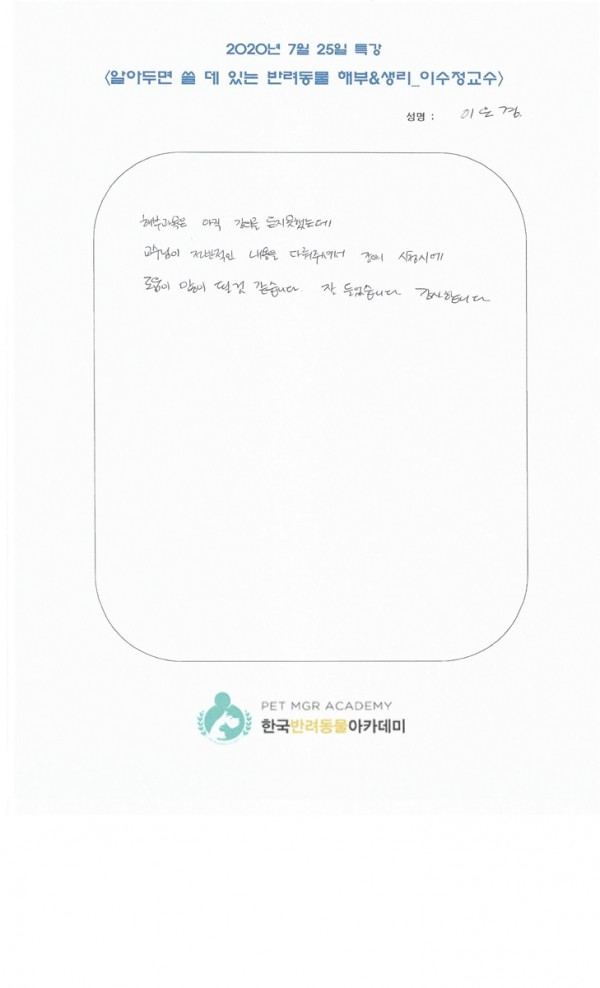 2020년 7월 25일 특강
<알아두면 쓸 데 있는 반려동물 해부&생리_이수정교수>
성명 : 이은경
해부과목은 아직 강의를 듣지못했는데
교수님이 전반적인 내용을 다뤄주셔서 강의 시청시에
도움이 많이 될것 같습니다. 잘 들었습니다 감사합니다
PET MGR ACADEMY
한국반려동물아카데미